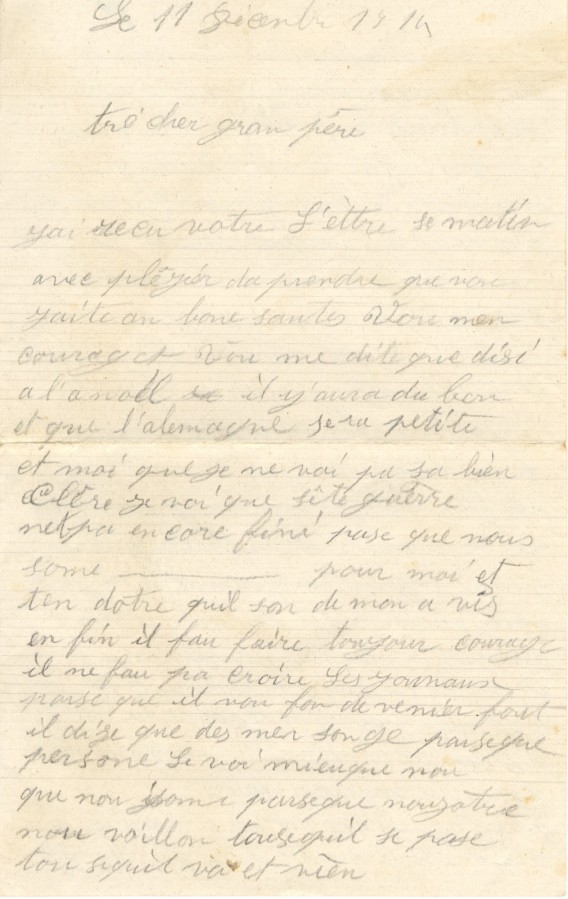 Le 11 Décembre 1914
tré cher gran pére
j'ai recu votre L'èttre se matin
avec plézir da prendre que vou
zaite an bone santes Vou men
courag et Vou me dite que disi
a l'a noël il y'aura du bon
et que l'alemagne sera petite
et moi que je ne voi pa sa bien
Clére je voi que séte guérre
net pa encore finí pasc que nous
some pour moi et
ten dotre quil son de mon a vis
en fin il fau faire toujour courage
il ne fau pa croire les journaux
parse que il vou fon devenier fout
il dise que des men songe parseque
persone Le voi mieuque nou
que nou some parseque nouzotre
nou voillon tousequil se pase
tou sequil va et vien